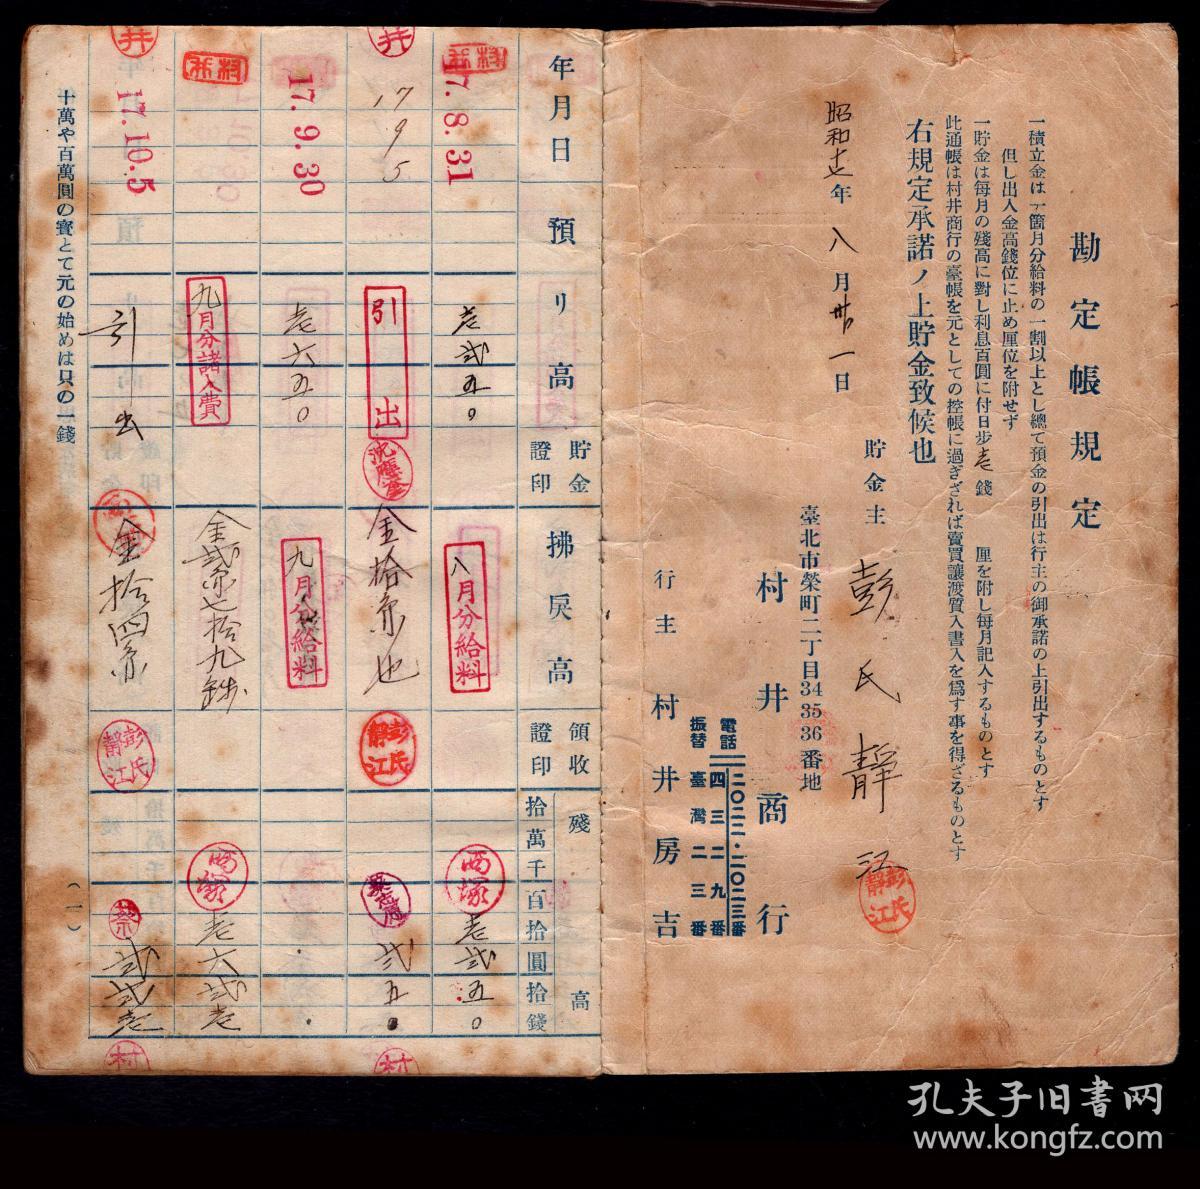 勘定帳規定
一積立金は一箇月分給料の一割以上とし總て預金の引出は行主の御承諾の上引出するものとす
但し出入金高錢位に止め厘位を附せず
一貯金は每月の殘高に對し利息百圓に付日步壱錢 厘を附し每月記入するものとす
此通帳は村井商行の臺帳を元としての控帳に過ぎざれば賣買讓渡質入書入を爲す事を得ざるものとす
右規定承諾ノ上貯金致候也
貯金主 彭氏靜江
彭氏靜江
昭和十七年八月卅一日
臺北市榮町二丁目34 35 36番地
村井商行
電話 二〇二二・二〇二三番
四三二九番
振替 臺灣二三番
行主 村井房吉
年月日
預リ高
貯金證印
拂戾高
領收證印
殘高
拾萬千百拾圓拾錢
村井
17.8.31
壱弐五0
八月分給料
西塚
壱弐五0
井
17 9 5
引出
金拾円也
彭氏靜江
弐五0
村
17.9.30
壱六五0
九月分給料
村井
九月分諸入費
金弐円七拾九銭
西塚
壱六弐壱
井
17.10.5
引出
金拾四円
彭氏靜江
蔡
弐弐壱
村
(一)
十萬や百萬圓の寶とて元の始めは只の一錢
孔夫子旧书网
www.kongfz.com